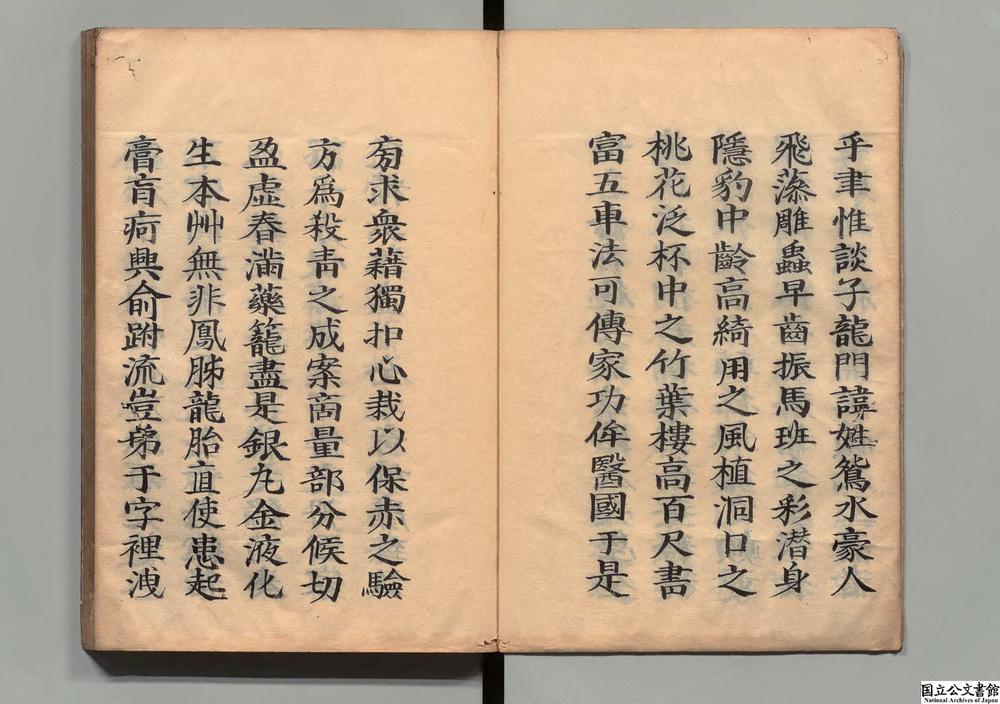 乎聿惟談子龍門諱姓鴛水豪人
飛藻雕蟲早齒振馬班之彩潛身
隱豹中齡高綺用之風植洞口之
桃花泛杯中之竹葉樓高百尺書
富五車法可傳家功侔醫國于是
旁求衆藉獨扣心裁以保赤之驗
方爲殺青之成案商量部分候切
盈虛春滿藥籠盡是銀丸金液化
生本艸無非鳳胏龍胎直使患起
膏肓疴興俞跗流豈弟于字裡洩
国立公文書館
National Archives of Japan